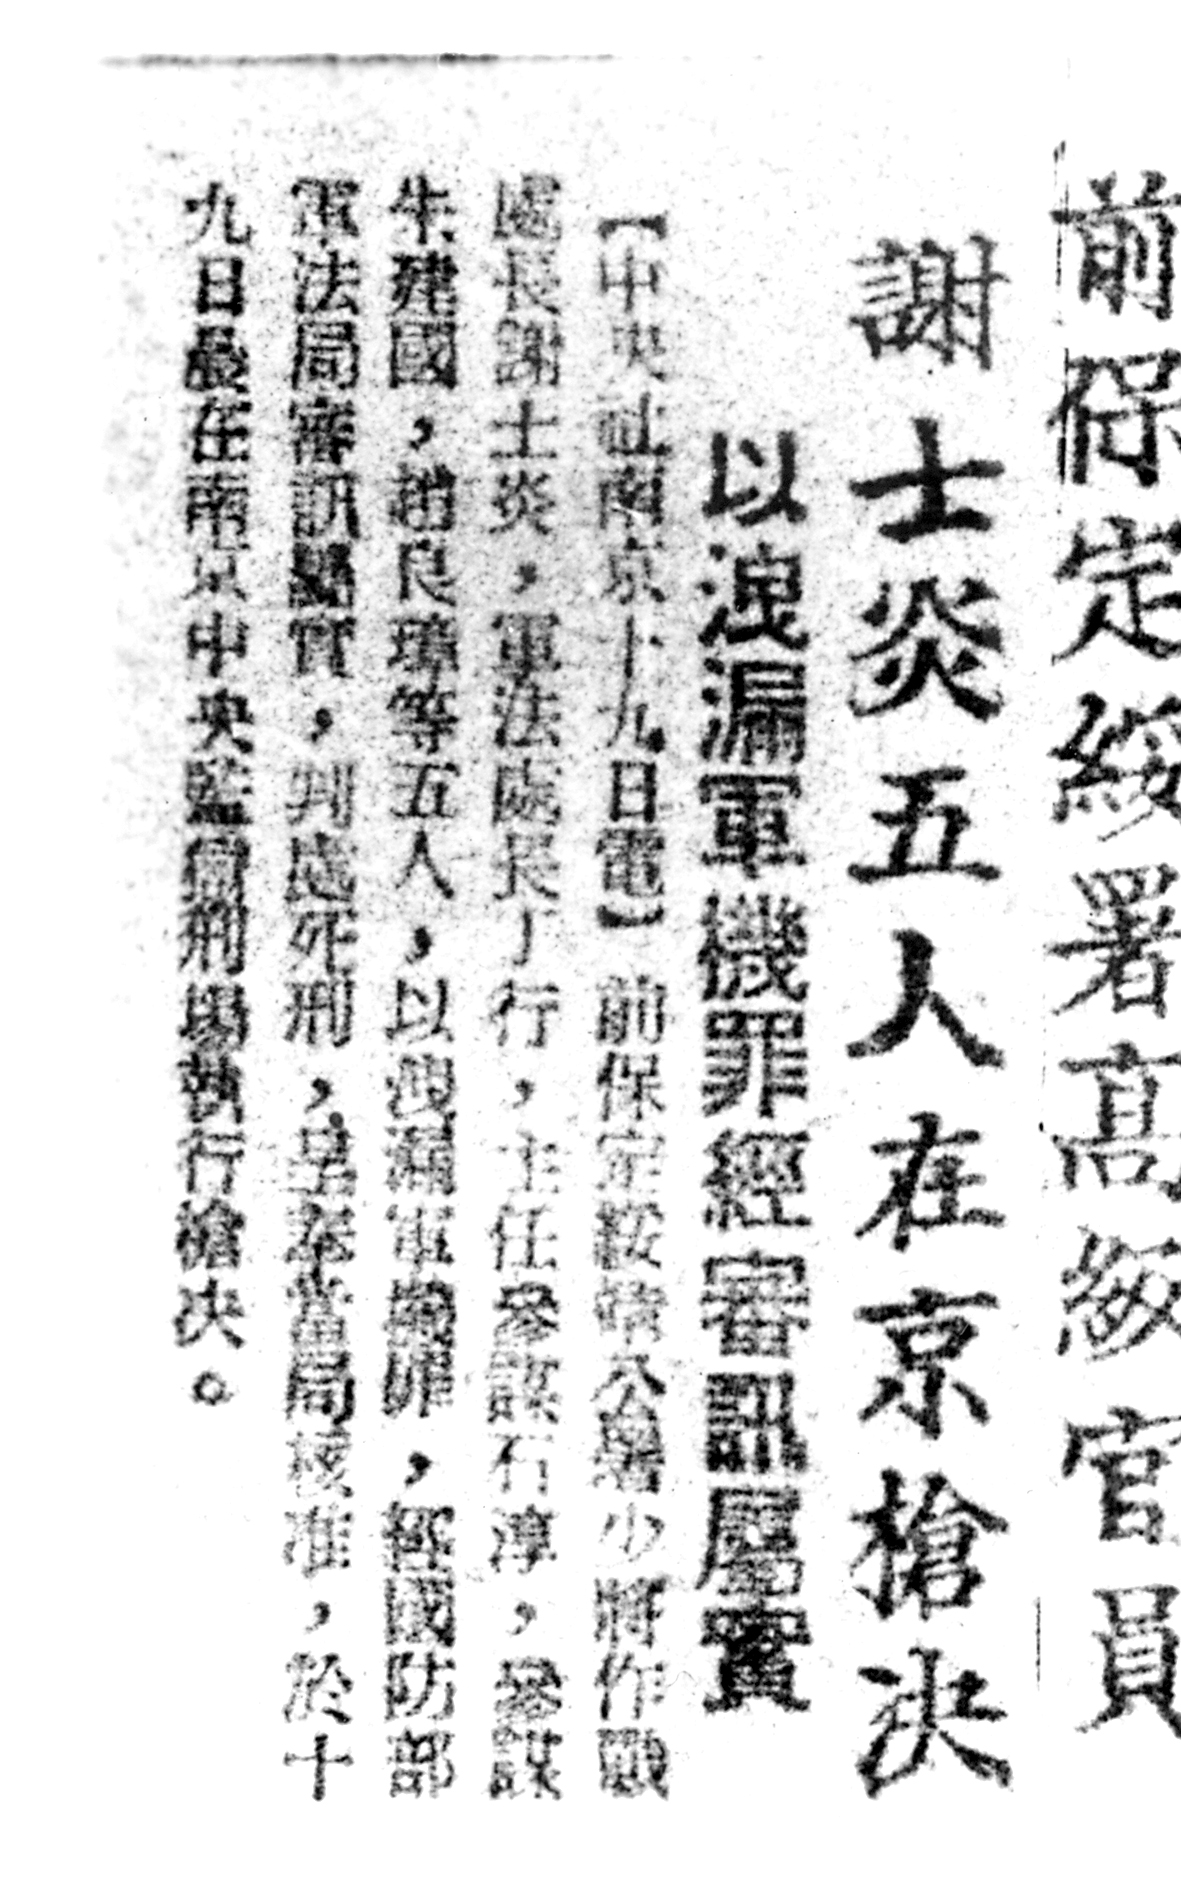 前保定綏署高級官員
謝士炎五人在京槍決
以洩漏軍機罪經審訊屬實
【中央社南京十九日電】前保定綏靖公署少將作戰
處長謝士炎，軍法處長丁行，主任參謀石淳，參謀
朱建國，趙良璋等五人，以洩漏軍機罪，經國防部
軍法局審訊屬實，判處死刑，呈奉當局核准，於十
九日晨在南京中央監獄刑場執行槍決。